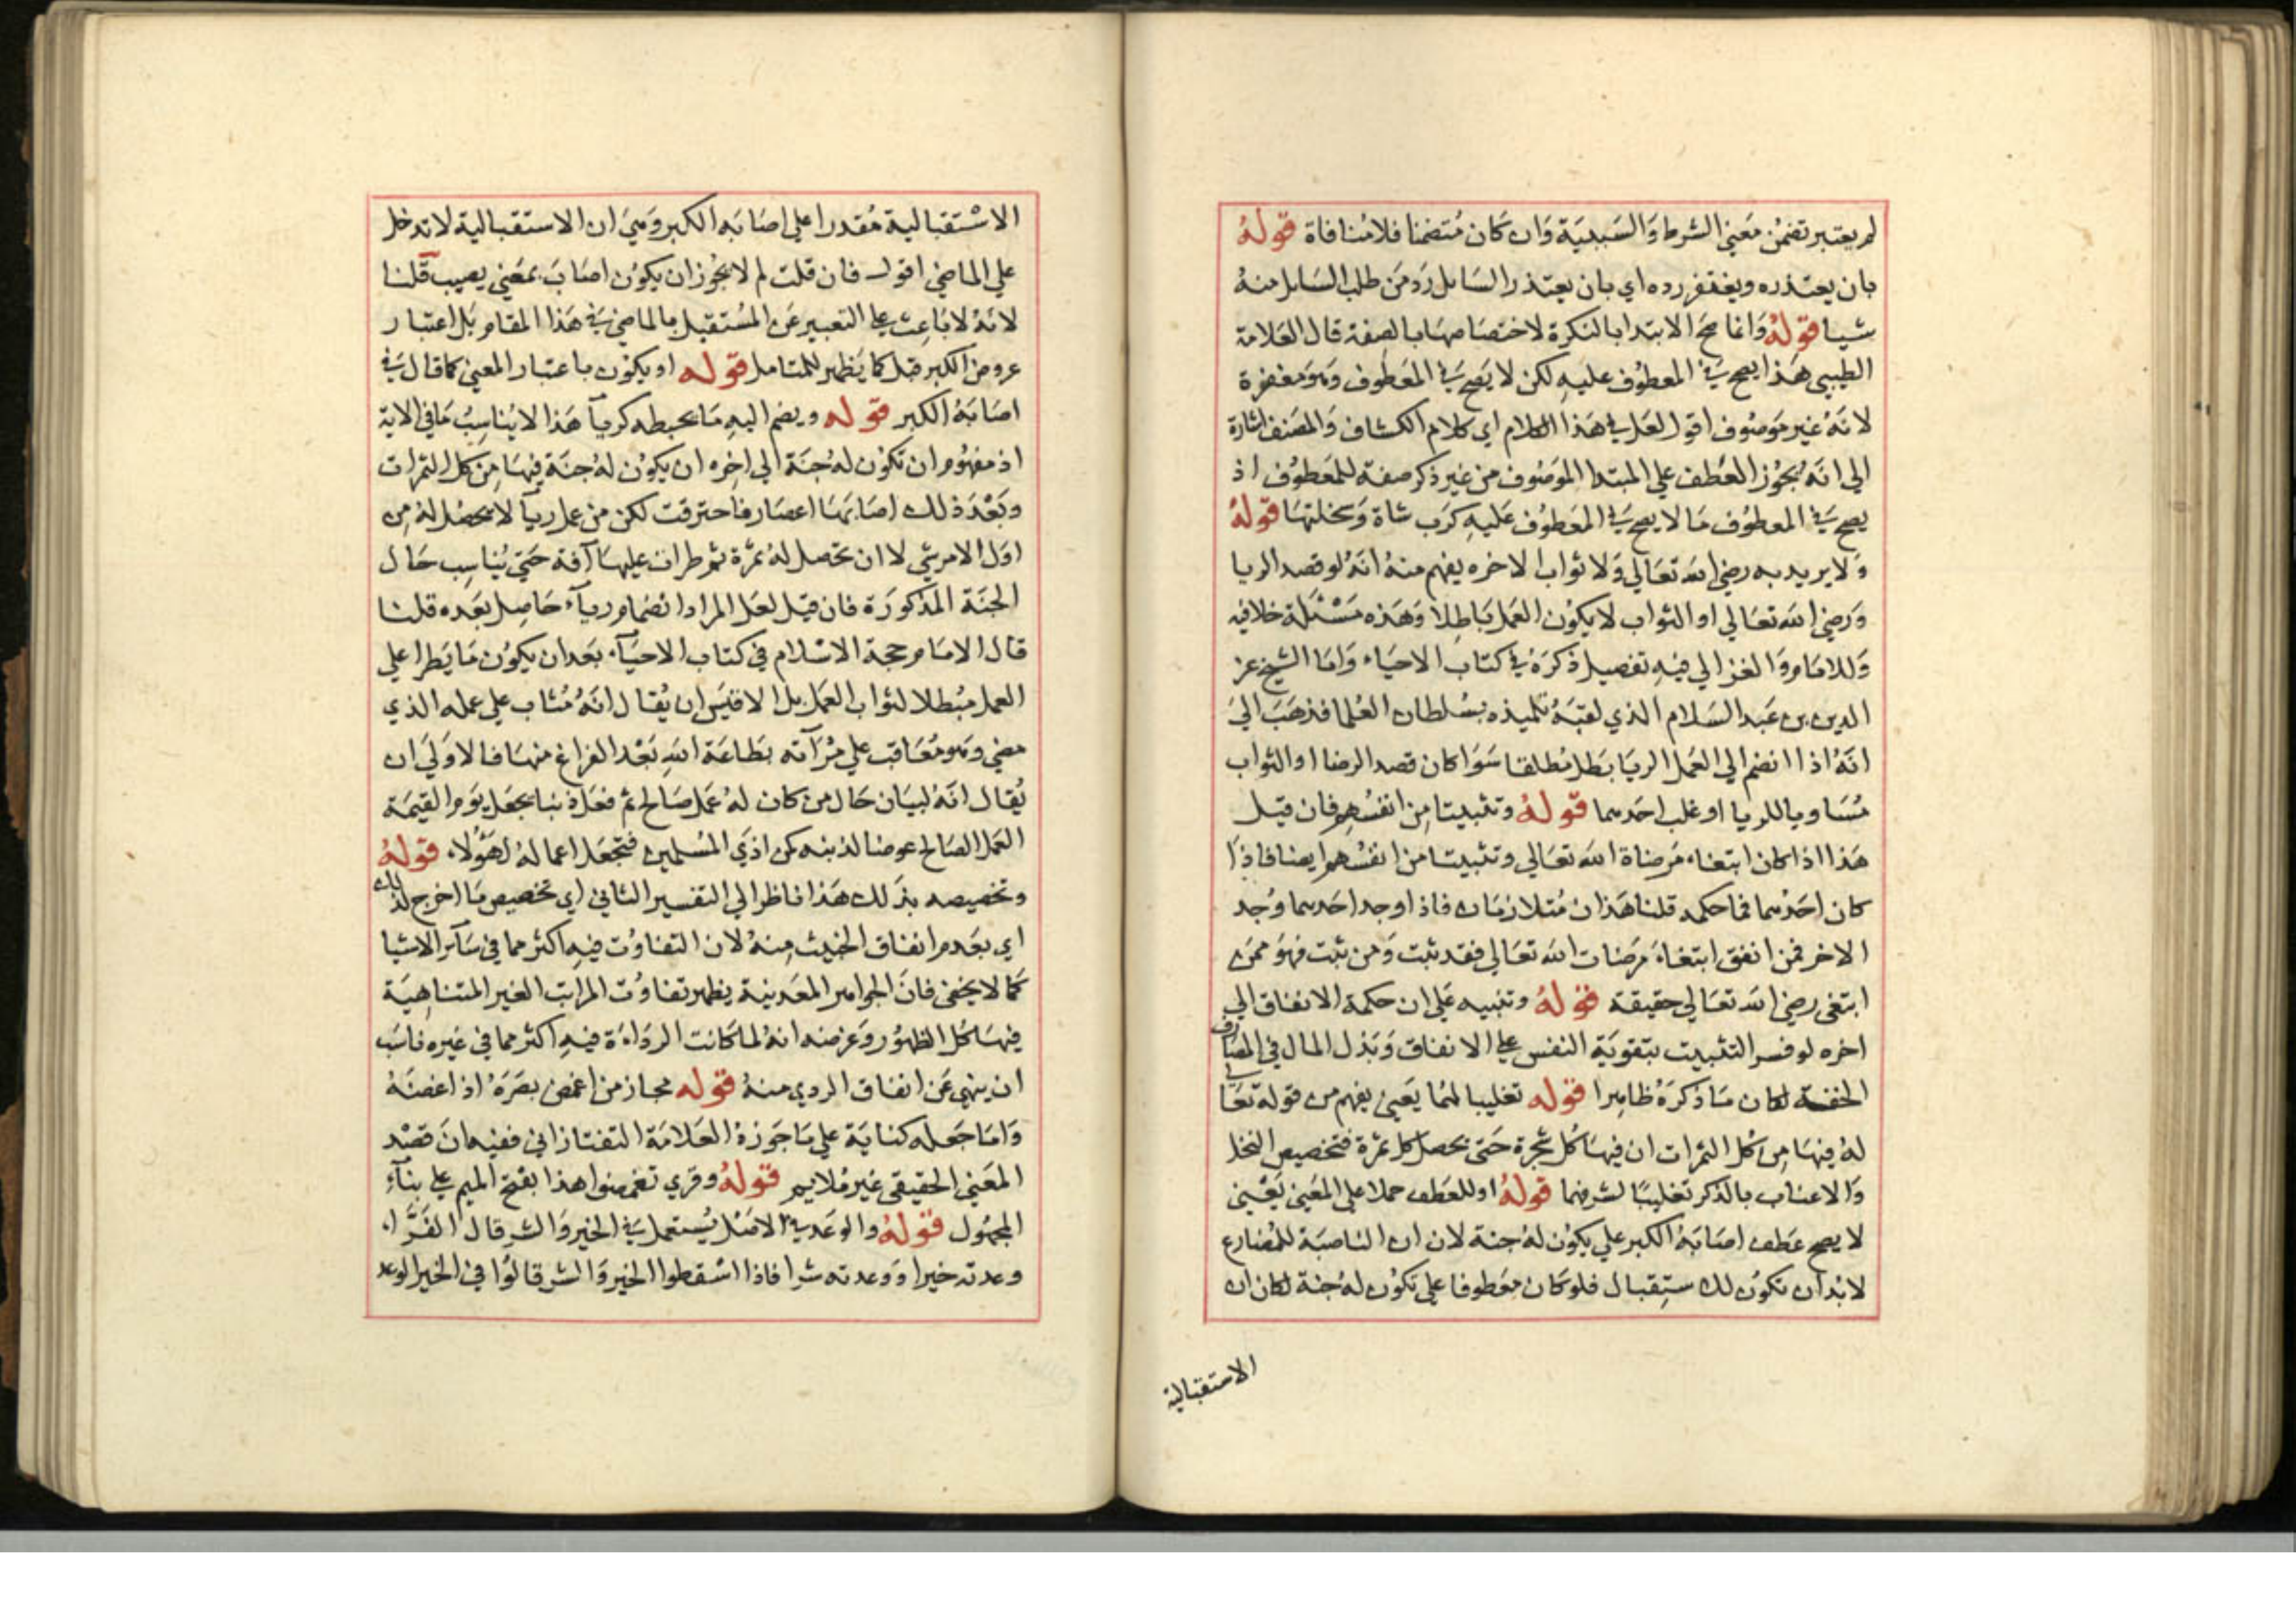 لم يعتبر تضمن معني الشرط والسببية وان كان متضمنا فلا منافاة قوله
بان يعتذره ويغتفر رده اي بان يعتذر السايل رد من طلب السايل منه
شيا قوله وانما صح الابتدا بالنكرة لاختصاصها بالصفة قال العلامة
الطيبي هذا يصح في المعطوف عليه لكن لا يصح في المعطوف وهو مغفرة
لانه غير موصوف اقول لعل في هذا الكلام اي كلام الكشاف والمصنف اشارة
الي انه يجوز العطف علي المبتدا الموصوف من غير ذكر صفة للمعطوف اذ
يصح في المعطوف ما لا يصح في المعطوف عليه كرب شاة وسخلتها قوله
ولا يريد به رضي الله تعالي ولا ثواب الاخره يفهم منه انه لو قصد الريا
ورضي الله تعالي او الثواب لا يكون العمل باطلا وهذه مسئلة خلافيه
وللامام والغزالي فيه تفصيل ذكره في كتاب الاحياء واما الشيخ عز
الدين بن عبد السلام الذي لقبه تلميذه بسلطان العلما فذهب الي
انه اذا انضم الي العمل الريا بطل مطلقا سوا كان قصد الرضا او الثواب
مساويا للريا او غلب احدهما قوله وتثبيتا من انفسهم فان قيل
هذا اذا كان ابتغاء مرضاة الله تعالي وتثبيتا من انفسهم ايضا فاذا
كان احدهما فما حكمه قلنا هذان متلازمان فاذا وجد احدهما وجد
الاخر فمن انفق ابتغاء مرضات الله تعالي فقد ثبت ومن ثبت فهو ممن
ابتغي رضي الله تعالي حقيقة قوله وتنبيه علي ان حكمة الانفاق الي
اخره لو فسر التثبيت بتقوية النفس علي الانفاق وبذل المال في المصارف
الخفية لكان ما ذكره ظاهرا قوله تغليبا لهما يعني يفهم من قوله تعالي
له فيها من كل الثمرات ان فيها كل شجرة حتي يحصل كل ثمرة فتخصيص النخل
والاعناب بالذكر تغليبا لشرفهما قوله او للعطف حملا علي المعني يعني
لا يصح عطف اصابه الكبر علي يكون له جنة لان ان الناصبة للمضارع
لابد ان تكون للاستقبال فلو كان معطوفا علي تكون له جنة لكان ان
الاستقبالية
الاستقبالية مقدرا علي اصابه الكبر وهي ان الاستقبالية لا تدخل
علي الماضي اقول فان قلت لم لا يجوز ان يكون اصاب بمعني يصيب قلنا
لانه لا باعث علي التعبير عن المستقبل بالماضي في هذا المقام بل اعتبار
عروض الكبر قبل كما يظهر للمتامل قوله او يكون باعتبار المعني كما قال في
اصابه الكبر قوله ويضم اليه ما يحبطه كريآ هذا لا يناسب ما في الاية
اذ مفهوم ان تكون له جنة الي اخره ان يكون له جنة فيها من كل الثمرات
وبعد ذلك اصابتها اعصار فاحترقت لكن من عمل ريآ لا يحصل له من
اول الامر شي لا ان تحصل له ثمرة ثم طرات عليها آفة حتي يناسب حال
الجنة المذكورة فان قيل لعل المراد انضمام ريآء حاصل بعده قلنا
قال الامام حجة الاسلام في كتاب الاحيآء بعد ان يكون ما يطرا علي
العمل مبطلا لثواب العمل بل الاقيس ان يقال انه مثاب علي عمله الذي
مضي وهو معاقب علي مرآته بطاعة الله بعد الفراغ منها فالاولي ان
يقال انه لبيان حال من كان له عمل صالح ثم فعل ذنبا يجعل يوم القيمة
العمل الصالح عوضا لذنبه كمن اذي المسلمين فتجعل اعماله لهؤلاء قوله
وتخصيصه بذلك هذا ناظر الي التفسير الثاني اي تخصيص ما اخرج لذلك
اي بعدم انفاق الخبيث منه لان التفاوت فيه اكثر مما في سآئر الاشيا
كما لا يخفي فان الجواهر المعدينية يظهر تفاوت المراتب الغير المتناهية
فيها كل الظهور وغرضه انه لما كانت الرداءة فيه اكثر مما في غيره ناسب
ان ينهي عن انفاق الردي منه قوله مجاز من اغمض بصره اذا غضه
واما جعله كناية علي ما جوزه العلامة التفتازاني ففيه ان قصد
المعني الحقيقي غير ملايم قوله وقري تغمضوا هذا بفتح الميم علي بنآء
المجهول قوله والوعد في الاصل يستعمل في الخير والشر قال الفرّاء
وعدته خيرا ووعدته شرا فاذا اسقطوا الخير والشر قالوا في الخير الوعد